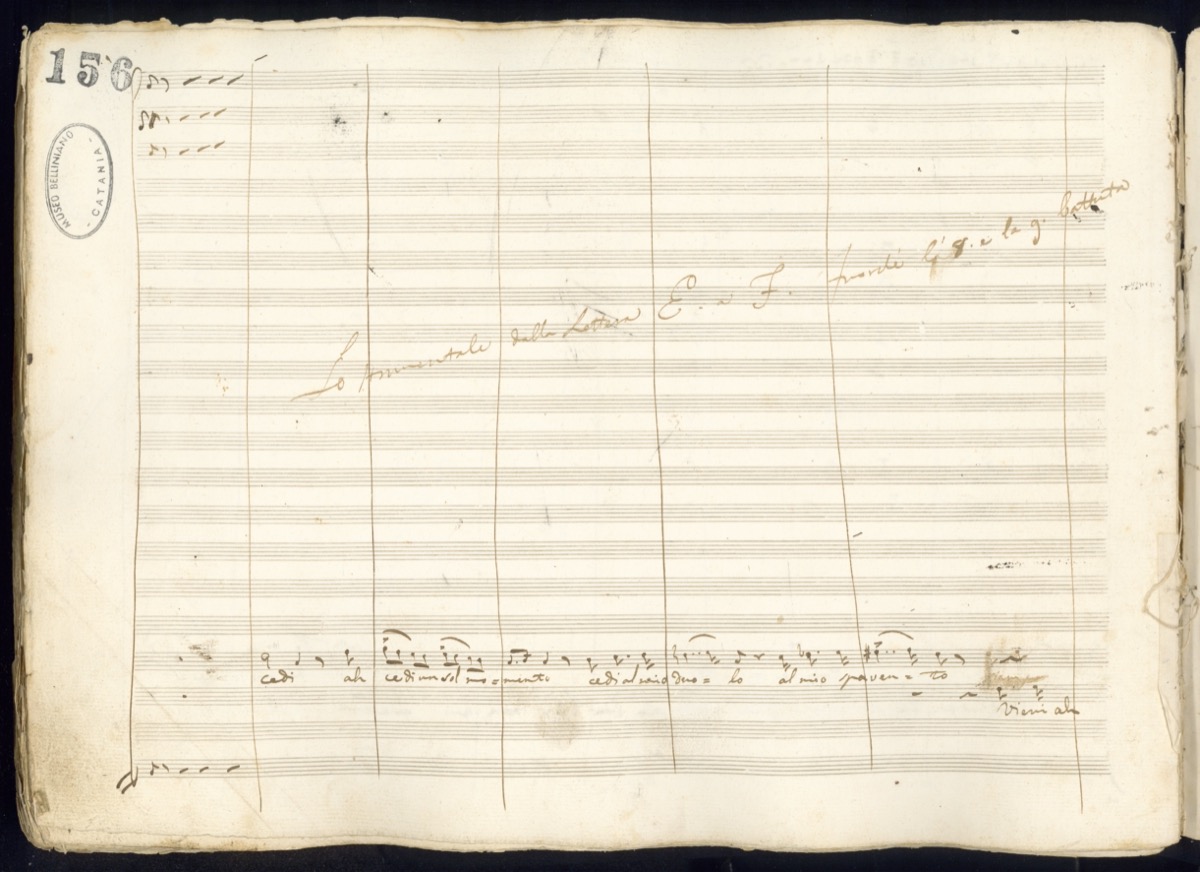 156
MUSEO BELLINIANO
- CATANIA -
Lo strumentale dalla Lettera E. a F. fuorché li 8. e la 9. battuta
cedi ah cedi un sol mo=mento cedi al mio duo=lo al mio spaven=to
Vieni ah